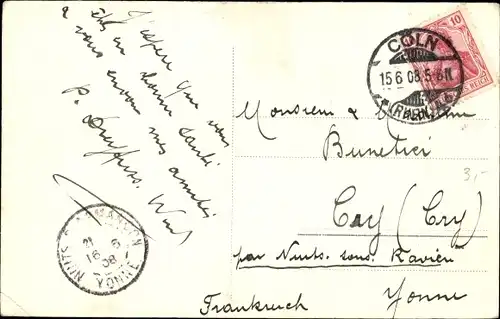 J'espère que vous
êtes en bonne santé
& vous envoie mes amitiés
P. Dreyfuss.
10
REICH
CÖLN
15.6.08.5-6N
(RHEIN)
Monsieur & Madame
Bunetier
3,-
Cay (Cry)
par Nuits sous Ravières
Yonne
Frankreich
NUITS
YONNE
16 6
08